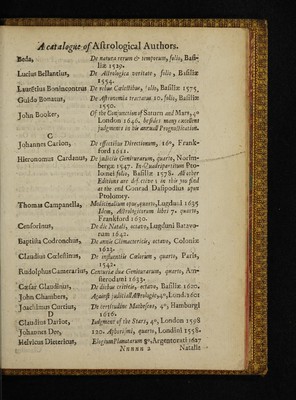 A catalogue of Astrological Authors.
Beda, De natura rerum & temporum, folio, Basi-
liæ 1529.
Lucius Bellantius, De Astrologica veritate, folio, Basiliæ
1554.
Laurentius Bonincontrus De rebus Cœlestibus, folio, Basiliæ 1575
Guido Bonatus, De Astronomia tractatus 10. folio, Basiliæ
1550.
John Booker, Of the Conjunction of Saturn and Mars, 4º
London 1646. besides many excellent
judgments in his annual Prognostication.
C
Johannes Carion, De effectibus Directionum, 16º, Frank-
ford 1611.
Hieronymus Cardanus, De judiciis Geniturarum, quarto, Norim-
bergæ 1547. In Quadripartitum Pto-
lomei folio, Basiliæ 1578. All other
Editions are defective; in this you find
at the end Conrad Dasipodius upon
Ptolomey.
Thomas Campanella, Medicinalium quarto, Lugduni 1635
Idem, Astrologicorum libri 7. quarto,
Frankford 1630.
Censorinus, De die Natali, octavo, Lugduni Batavo-
rum 1642.
Baptista Codronchus, De annis Climactericis, octavo, Coloniæ
1623.
Claudius Cœlestinus, De influentiis Cœlorum, quarto, Paris,
1542.
Rudolphus Camerarius, Centuriæ duæ Geniturarum, quarto, Am-
sterodami 1633.
Cæsar Claudinus, De diebus criticis, octavo, Basiliæ 1620.
John Chambers, Against judiciall Astrologie, 4º, Lond. 1601
Joachimus Curtius, De certitudine Matheseos, 4º, Hamburgi
D 1616.
Claudius Dariot, Judgment of the Stars, 4º, London 1598
Johannes Dee, 120. Aphorismi, quarto, Londini 1558.
Helvicus Dietericus, Elogium Planetarum 8º, Argentorati 1627
Nnnnn 2 Natalis